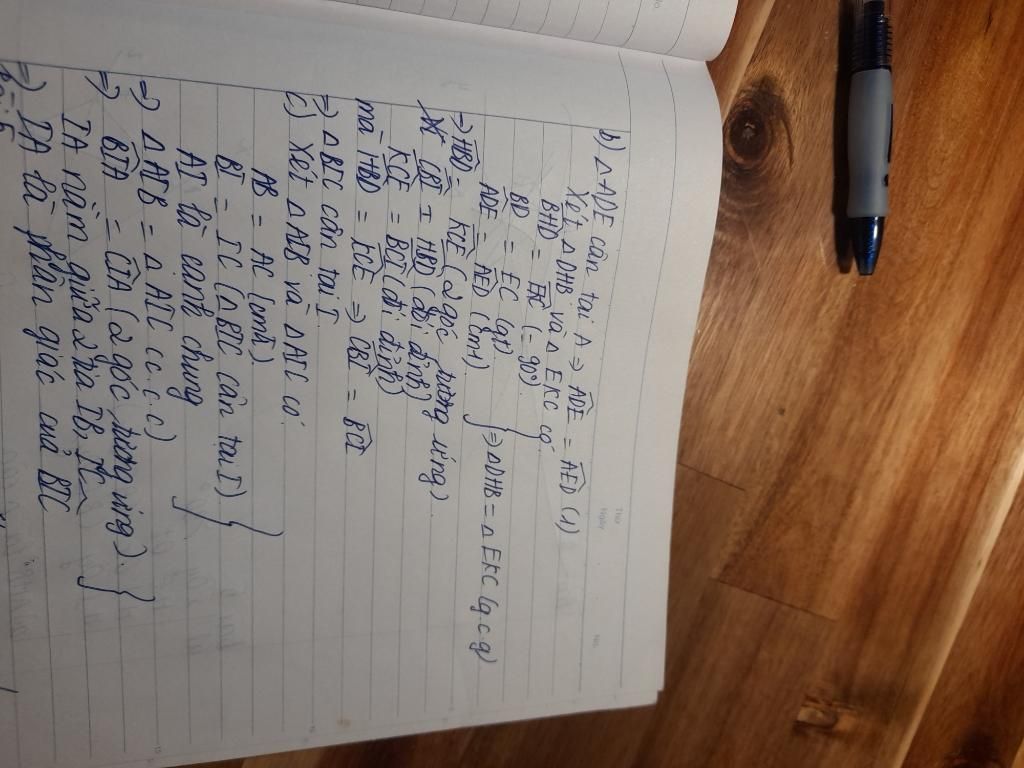 b) △ ADE cân tại A ⇒ ADE = AED (1)
Xét △ DHB và △ EKC có
BHD = EKC (= 90°)
BD = EC (gt)
ADE = AED (cmt) } ⇒ △DHB = △ EKC (g.c.g)
⇒ HBD = KCE (2 góc tương ứng)
CBI = HBD (đối đỉnh)
KCE = BCI (đối đỉnh)
mà HBD = KCE ⇒ CBI = BCI
⇒ △ BIC cân tại I
c) Xét △ AIB và △ AIC có
AB = AC (cmt)
BI = IC (△ BIC cân tại I)
AI là cạnh chung }
⇒ △ AIB = △ AIC (c.c.c)
⇒ BIA = CIA (2 góc tương ứng)
IA nằm giữa 2 tia IB, IC }
⇒ IA là phân giác của BIC